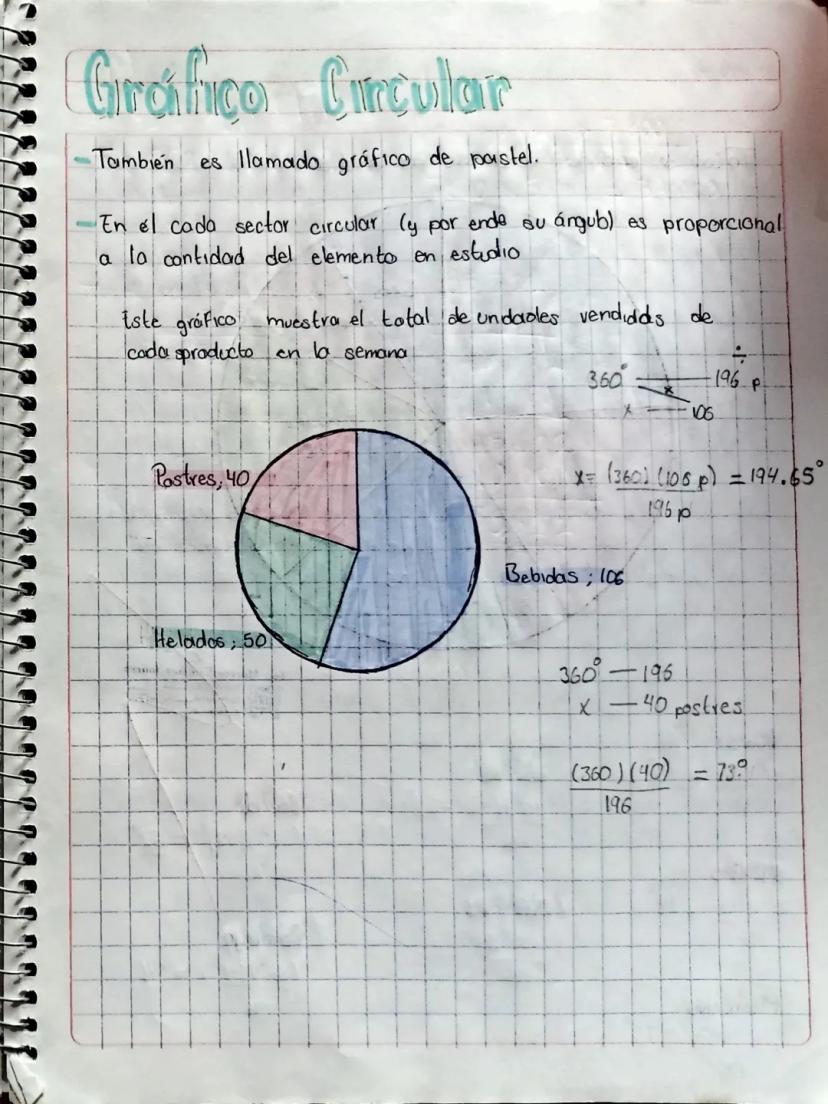 Gráfico Circular
- También es llamado gráfico de pastel.
- En él cada sector circular (y por ende su ángulo) es proporcional
a la cantidad del elemento en estudio
Este gráfico muestra el total de undades vendidas de
cada producto en la semana
÷
360° — 196 p
x — 106
Postres; 40
x = (360) (106 p) = 194.65°
196 p
Bebidas ; 106
Helados ; 50
360° — 196
x — 40 postres
(360) (40) = 73°
196